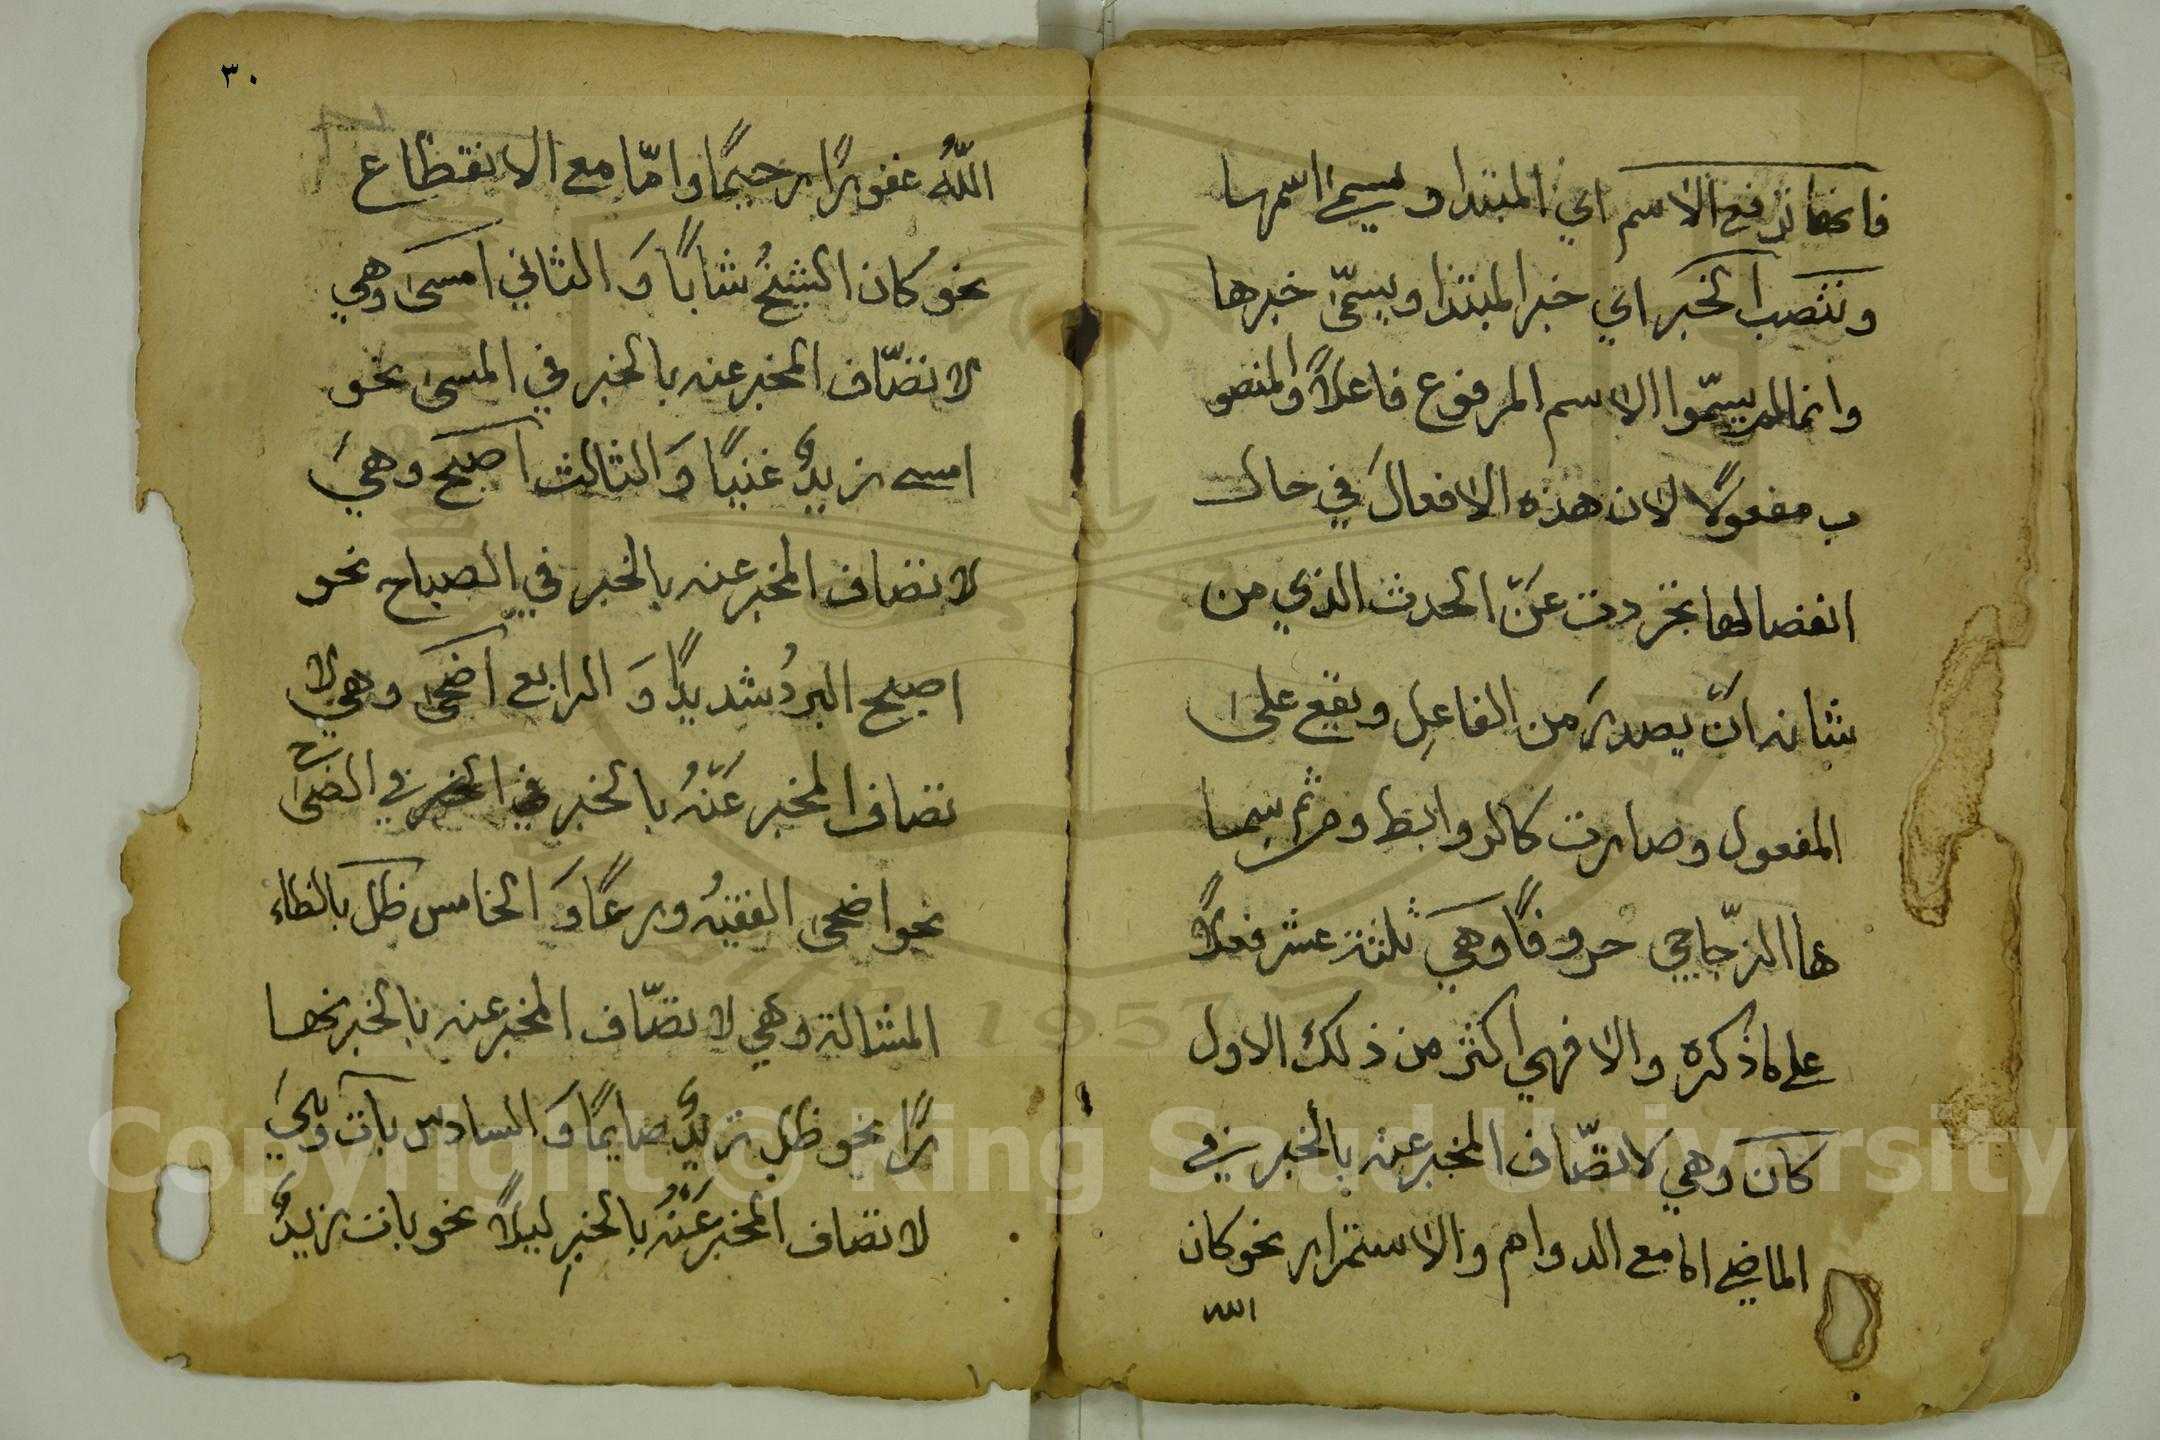 فانها ترفع الاسم اي المبتدا ويسمى اسمها
وتنصب الخبر اي خبر المبتدا ويسمّى خبرها
وانما لم يسمّوا الاسم المرفوع فاعلاً والمنصو
ب مفعولاً لان هذه الافعال في حال
انفصالها تجردت عن الحدث الذي من
شانه ان يصدر من الفاعل ويقع على
المفعول وصارت كالروابط ومن ثم سما
ها الزجاجي حروفاً وهي ثلثة عشر فعلاً
على ما ذكره والا فهي اكثر من ذلك الاول
كان وهي لاتصّاف المخبر عنه بالخبر في
الماضي اما مع الدوام والاستمرار نحو كان
الله
٣٠
اللّٰهُ غفورًا رحيمًا وامّا مع الانقطاع
نحو كان الشيخُ شابًا وَ الثاني امسى وهي
لاتصّاف المخبر عنه بالخبر في المسى نحو
امسى زيدٌ غنيًا وَ الثالث اصبح وهي
لاتصاف المخبر عنه بالخبر في الصباح نحو
اصبح البردُ شديدًا وَ الرابع اضحى وهي لا
تصاف المخبر عنهُ بالخبر في الضحى
نحو اضحى الفقيهُ ورعًا وَ الخامس ظل بالظاء
المشالة وهي لاتصّاف المخبر عنه بالخبر نها
رًا نحو ظل زيدٌ صايمًا وَ السادس بات وهي
لاتصاف المخبر عنهُ بالخبرِ ليلاً نحو بات زيدٌ
Copyright © King Saud University
1957